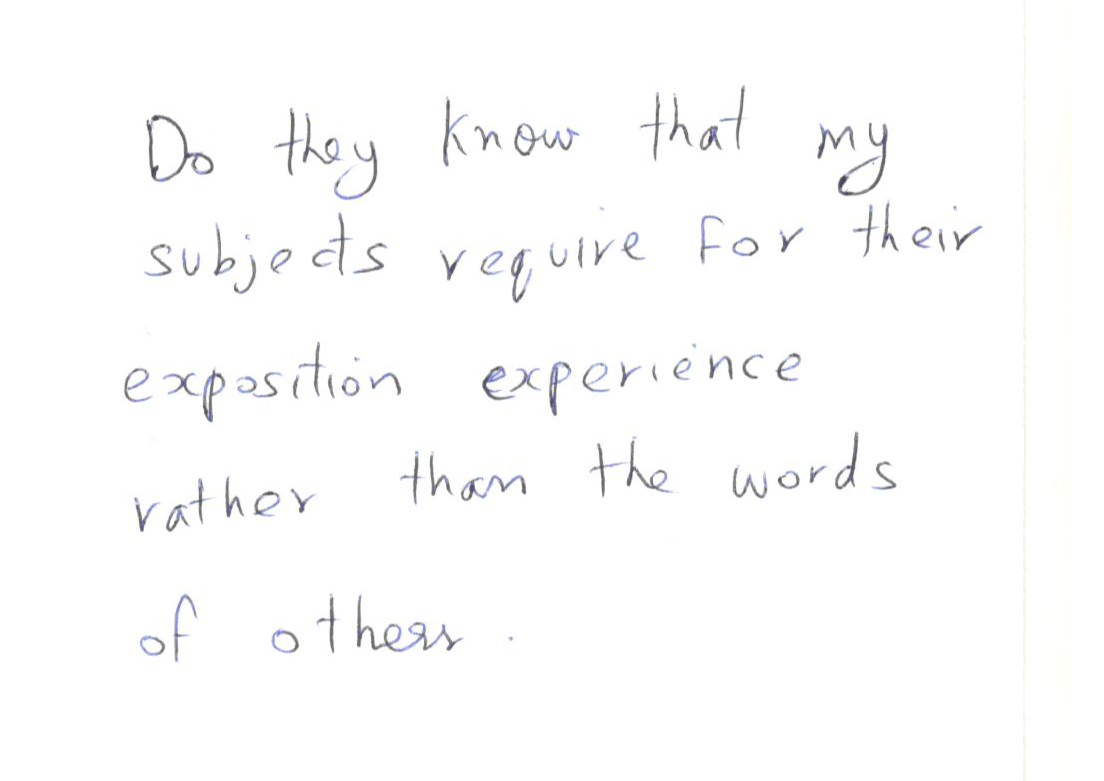 Do they know that my
subjects require for their
exposition experience
rather than the words
of others.